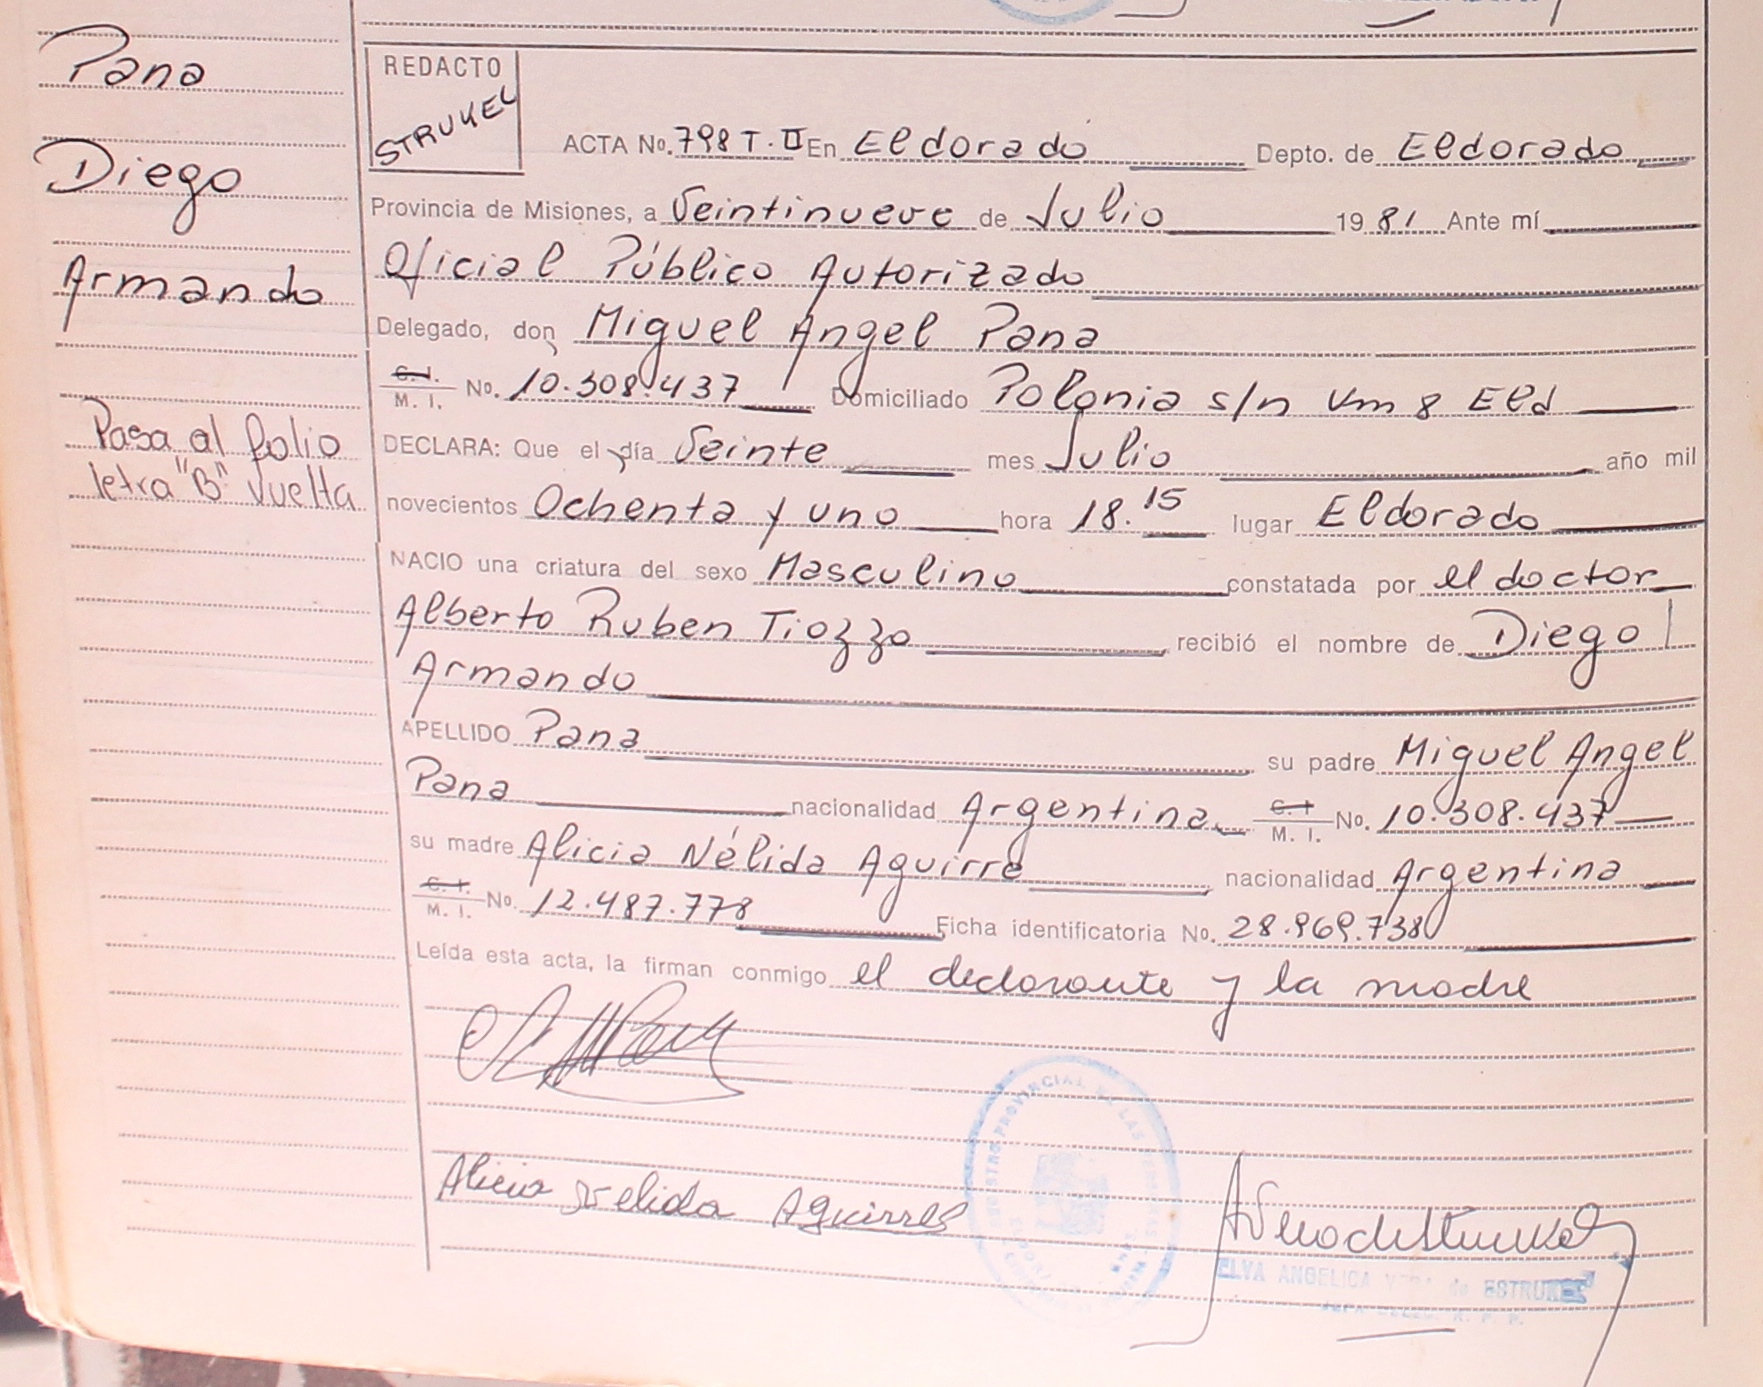 Pana
Diego
Armando
Pasa al folio
letra "B" vuelta
REDACTO
STRUKEL
ACTA No. 798 T. II En Eldorado Depto. de Eldorado
Provincia de Misiones, a Veintinueve de Julio 1981 Ante mí
Oficial Público Autorizado
Delegado, don Miguel Angel Pana
C. I. M. I. No. 10.308.437 Domiciliado Polonia s/n Km 8 Eld
DECLARA: Que el día Veinte mes Julio año mil
novecientos Ochenta y uno hora 18.15 lugar Eldorado
NACIO una criatura del sexo Masculino constatada por el doctor
Alberto Ruben Tiozzo recibió el nombre de Diego
Armando
APELLIDO Pana su padre Miguel Angel
Pana nacionalidad Argentina C. I. M. I. No. 10.308.437
su madre Alicia Nélida Aguirre nacionalidad Argentina
C. I. M. I. No. 12.487.778 Ficha identificatoria No. 28.969.738
Leída esta acta, la firman conmigo el declarante y la madre
Alicia Nelida Aguirres
REGISTRO PROVINCIAL DE LAS PERSONAS
ELVA ANGELICA VERA de ESTRUKEL